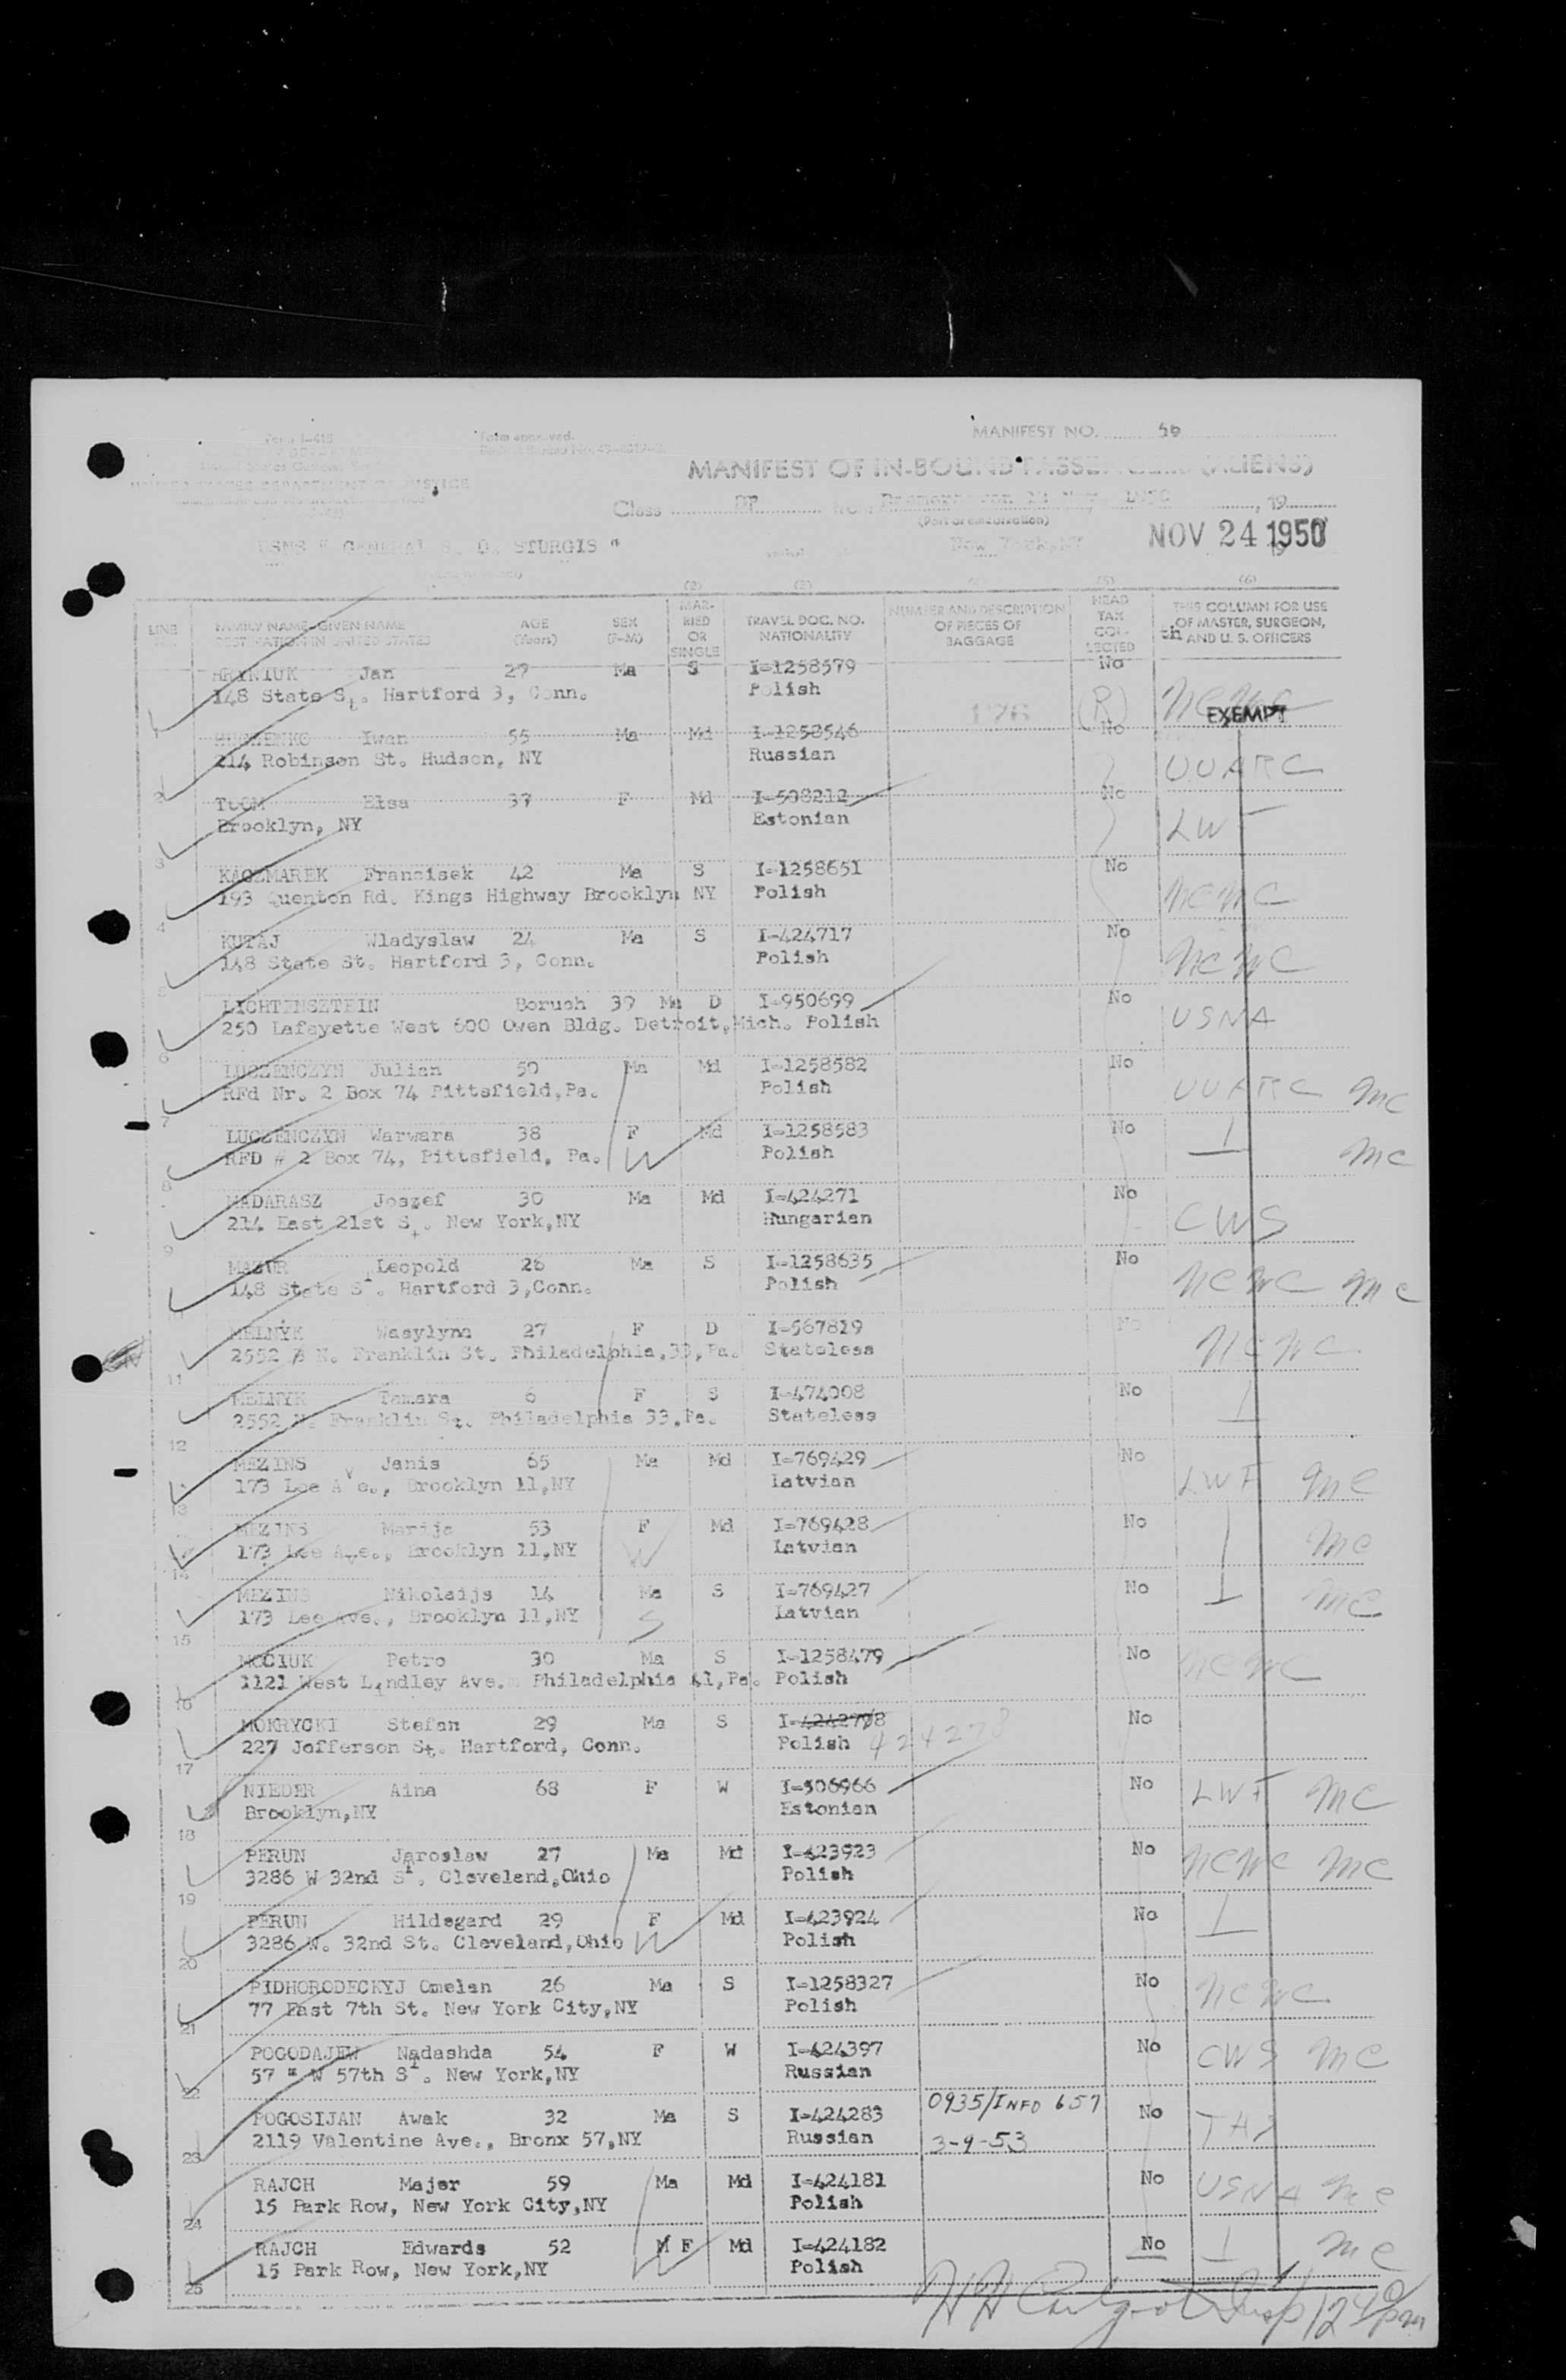 Form I-415
Form approved.
MANIFEST NO. 56
UNITED STATES DEPARTMENT OF JUSTICE
MANIFEST OF IN-BOUND PASSENGERS (ALIENS)
Class DP from 1950, 19
(Port of embarkation)
USNS " GENERAL S. D. STURGIS "
New York, NY
NOV 24 1950
(2) (3) (4) (5) (6)
LINE FAMILY NAME-GIVEN NAME DESTINATION IN UNITED STATES AGE (Years) SEX (F-M) MARRIED OR SINGLE TRAVEL DOC. NO. NATIONALITY NUMBER AND DESCRIPTION OF PIECES OF BAGGAGE HEAD TAX COLLECTED THIS COLUMN FOR USE OF MASTER, SURGEON, AND U. S. OFFICERS
HRYNIUK Jan 27 Ma S I-1258579 No
148 State St. Hartford 3, Conn. Polish 176 (R) NCWC EXEMPT
1 Iwan 55 Ma Md I-1258546 No
214 Robinson St. Hudson, NY Russian UUARC
2 TOOM Elsa 37 F Md I-508212 No
Brooklyn, NY Estonian LWF
3 KACZMAREK Francisek 42 Ma S I-1258651 No
193 Quenton Rd. Kings Highway Brooklyn NY Polish NCWC
4 KUTAJ Wladyslaw 24 Ma S I-424717 No
148 State St. Hartford 3, Conn. Polish NCWC
5 LICHTENSZTEIN Boruch 39 Ma D I-950699 No
250 Lafayette West 600 Owen Bldg. Detroit, Mich. Polish USNA
6 LUCZENCZYN Julian 50 Ma Md I-1258582 No
RFd Nr. 2 Box 74 Pittsfield, Pa. Polish UUARC mc
7 LUCZENCZYN Warwara 38 F Md I-1258583 No
RFD # 2 Box 74, Pittsfield, Pa. W Polish mc
8 MADARASZ Joszef 30 Ma Md I-424271 No
214 East 21st St. New York, NY Hungarian CWS
9 MAZUR Leopold 26 Ma S I-1258635 No
148 State St. Hartford 3, Conn. Polish NCWC mc
MELNYK Wasylyna 27 F D I-567819 No
2552 N. Franklin St. Philadelphia, 33, Pa. Stateless NCWC
11 MELNYK Tamara 6 F S I-474008 No
2552 N. Franklin St. Philadelphia 33, Pa. Stateless
12 MEZINS Janis 65 Ma Md I-769429 No
173 Lee Ave., Brooklyn 11, NY Latvian LWF mc
13 MEZINS Marija 53 F Md I-769428 No
173 Lee Ave., Brooklyn 11, NY W Latvian mc
14 MEZINS Nikolaijs 14 Ma S I-769427 No
173 Lee Ave., Brooklyn 11, NY S Latvian mc
15 MOCIUK Petro 30 Ma S I-1258479 No
1121 West Lindley Ave. Philadelphia 41, Pa. Polish NCWC
16 MOKRYCKI Stefan 29 Ma S I-424278 No
227 Jefferson St. Hartford, Conn. Polish 424278
17 NIEDER Aina 68 F W I-506966 No
Brooklyn, NY Estonian LWF mc
18 PERUN Jaroslaw 27 Ma Md I-423923 No
3286 W 32nd St. Cleveland, Ohio Polish NCWC mc
19 PERUN Hildegard 29 F Md I-423924 No
3286 W. 32nd St. Cleveland, Ohio W Polish
20 PIDHORODECKYJ Omelan 26 Ma S I-1258327 No
77 East 7th St. New York City, NY Polish NCWC
21 POGODAJEW Nadashda 54 F W I-424397 No
57 " W 57th St. New York, NY Russian CWS mc
22 POGOSIJAN Awak 32 Ma S I-424283 0935/INFO 657 No
2119 Valentine Ave., Bronx 57, NY Russian 3-9-53
23 RAJCH Majer 59 Ma Md I-424181 No
15 Park Row, New York City, NY Polish USNA mc
24 RAJCH Edwarda 52 M F Md I-424182 No
15 Park Row, New York, NY W Polish mc
25